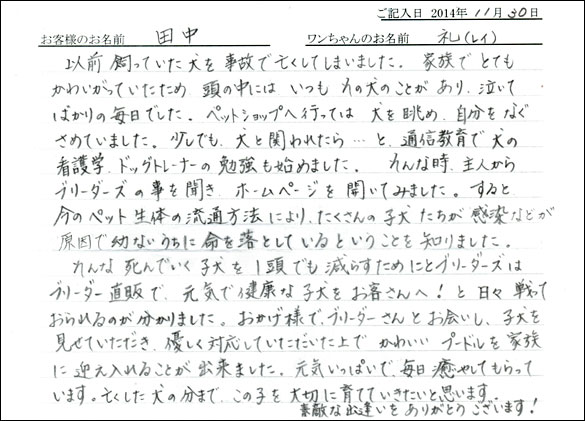 ご記入日 2014年 11月 30日
お客様のお名前 田中 ワンちゃんのお名前 礼(レイ)
以前 飼っていた犬を事故で亡くしてしまいました。 家族でとても
かわいがっていたため 頭の中には いつも その犬のことがあり、泣いて
ばかりの毎日でした。ペットショップへ行っては 犬を眺め、自分をなぐ
さめていました。少しでも、犬と関われたら…と、通信教育で犬の
看護学、ドッグトレーナーの勉強も始めました。 そんな時、主人から
ブリーダーズの事を聞き、ホームページを開いてみました。すると
今のペット生体の流通方法により、たくさんの子犬たちが 感染などが
原因で幼ないうちに 命を落としているということを知りました。
そんな 死んでいく子犬を 1頭でも 減らすためにとブリーダーズは
ブリーダー直販で、元気で健康な子犬をお客さんへ！と 日々 戦って
おられるのが分かりました。おかげ様で、ブリーダーさんとお会いし、子犬を
見せていただき、優しく対応していただいた上で かわいい プードルを家族
に 迎え入れることが 出来ました。元気いっぱいで、毎日 癒やしてもらって
います。亡くした犬の分まで、この子を大切に育てていきたいと思います。
素敵な出逢いを ありがとうございます！